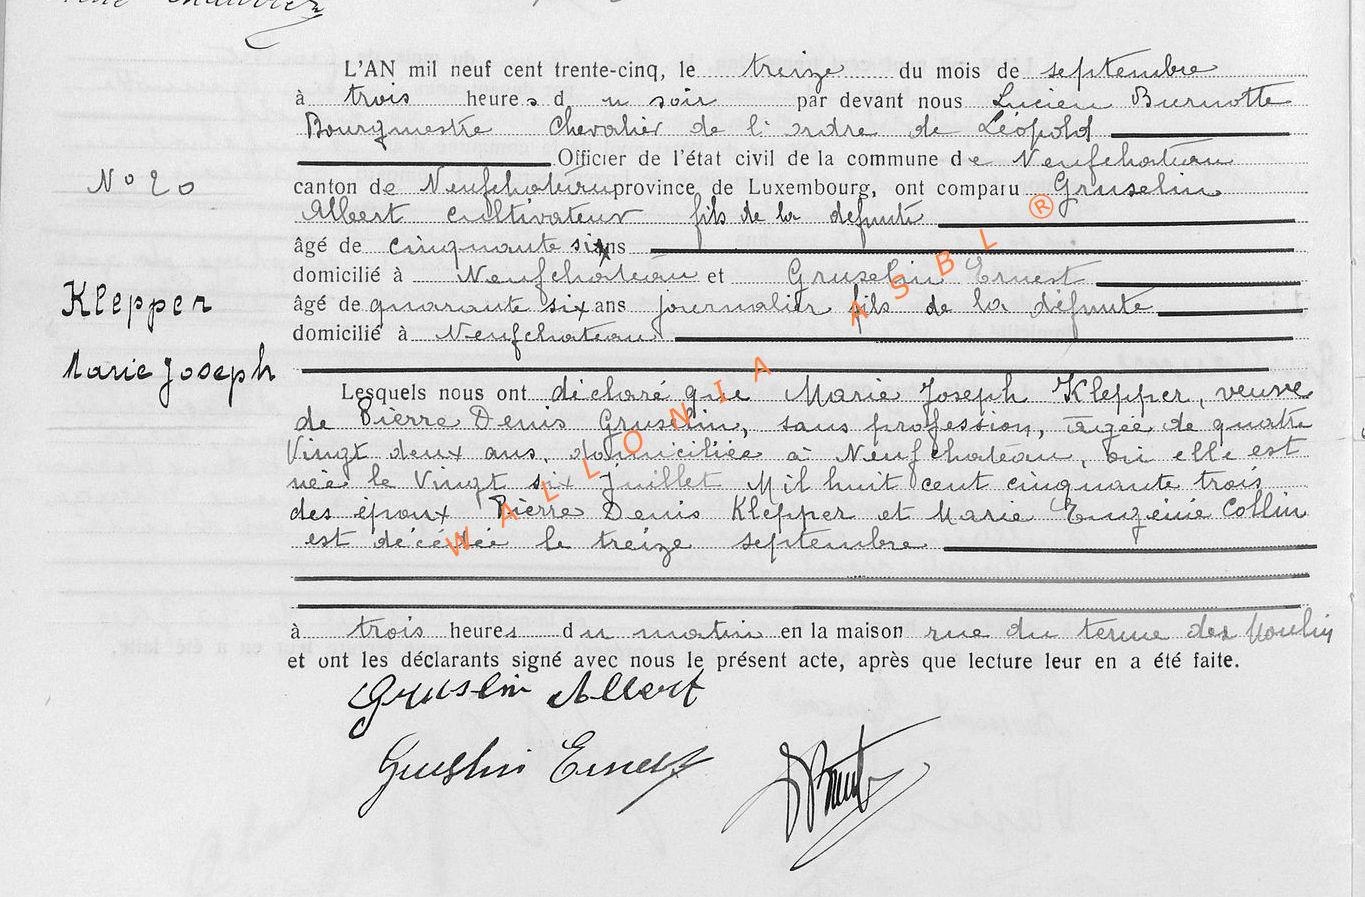 L'AN mil neuf cent trente-cinq, le treize du mois de septembre
à trois heures du soir par devant nous Lucien Burnotte
Bourgmestre Chevalier de l'ordre de Léopold
Officier de l'état civil de la commune de Neufchateau
N° 20
canton de Neufchateau province de Luxembourg, ont comparu Gruselin
Albert cultivateur fils de la défunte
âgé de cinquante six ans
domicilié à Neufchateau et Gruselin Ernest
Klepper
Marie Joseph
âgé de quarante six ans journalier fils de la défunte
domicilié à Neufchateau
Lesquels nous ont déclaré que Marie Joseph Klepper, veuve
de Pierre Denis Gruselin, sans profession, âgée de quatre
Vingt deux ans, domiciliée à Neufchateau, où elle est
née le Vingt six Juillet Mil huit cent cinquante trois
des époux Pierre Denis Klepper et Marie Eugénie Collin
est décédée le treize septembre
à trois heures du matin en la maison rue du terme des Moulin
et ont les déclarants signé avec nous le présent acte, après que lecture leur en a été faite.
Gruslin Albert
Gruslin Ernest
WALLONIA ASBL ®